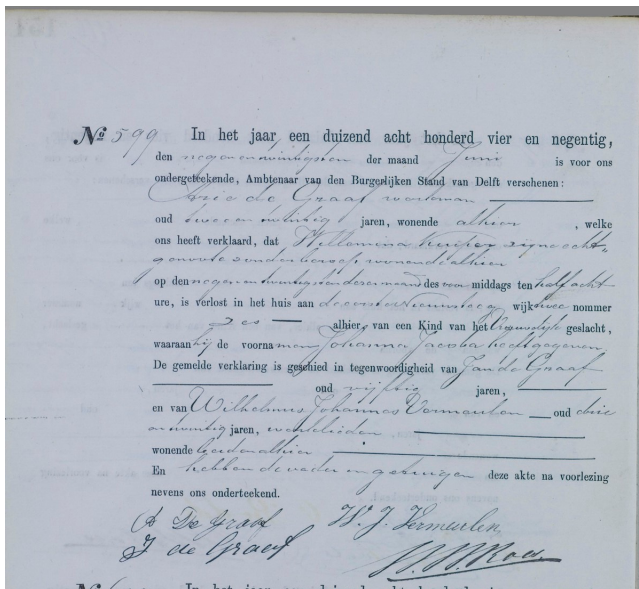 No 599 In het jaar een duizend acht honderd vier en negentig,
den negen en twintigsten der maand Juni is voor ons
ondergeteekende, Ambtenaar van den Burgerlijken Stand van Delft verschenen:
Arie de Graaf werkman
oud twee en twintig jaren, wonende alhier, welke
ons heeft verklaard, dat Willemina Kuiper zijne echt-
genoote zonder beroep wonende alhier
op den negen en twintigsten dezer maand des voor middags ten half acht
ure, is verlost in het huis aan de wijk twee nommer
alhier, van een Kind van het Vrouwelijk geslacht,
waaraan hij de voornamen Johanna Jacoba heeft gegeven
De gemelde verklaring is geschied in tegenwoordigheid van Jan de Graaf
oud vijftig jaren,
en van Wilhelmus Johannes Vermeulen oud drie
en twintig jaren, werklieden
wonende beiden alhier
En hebben de vader en getuigen deze akte na voorlezing
nevens ons onderteekend.
A De Graaf W. J. Vermeulen
J de Graaf
In het jaar